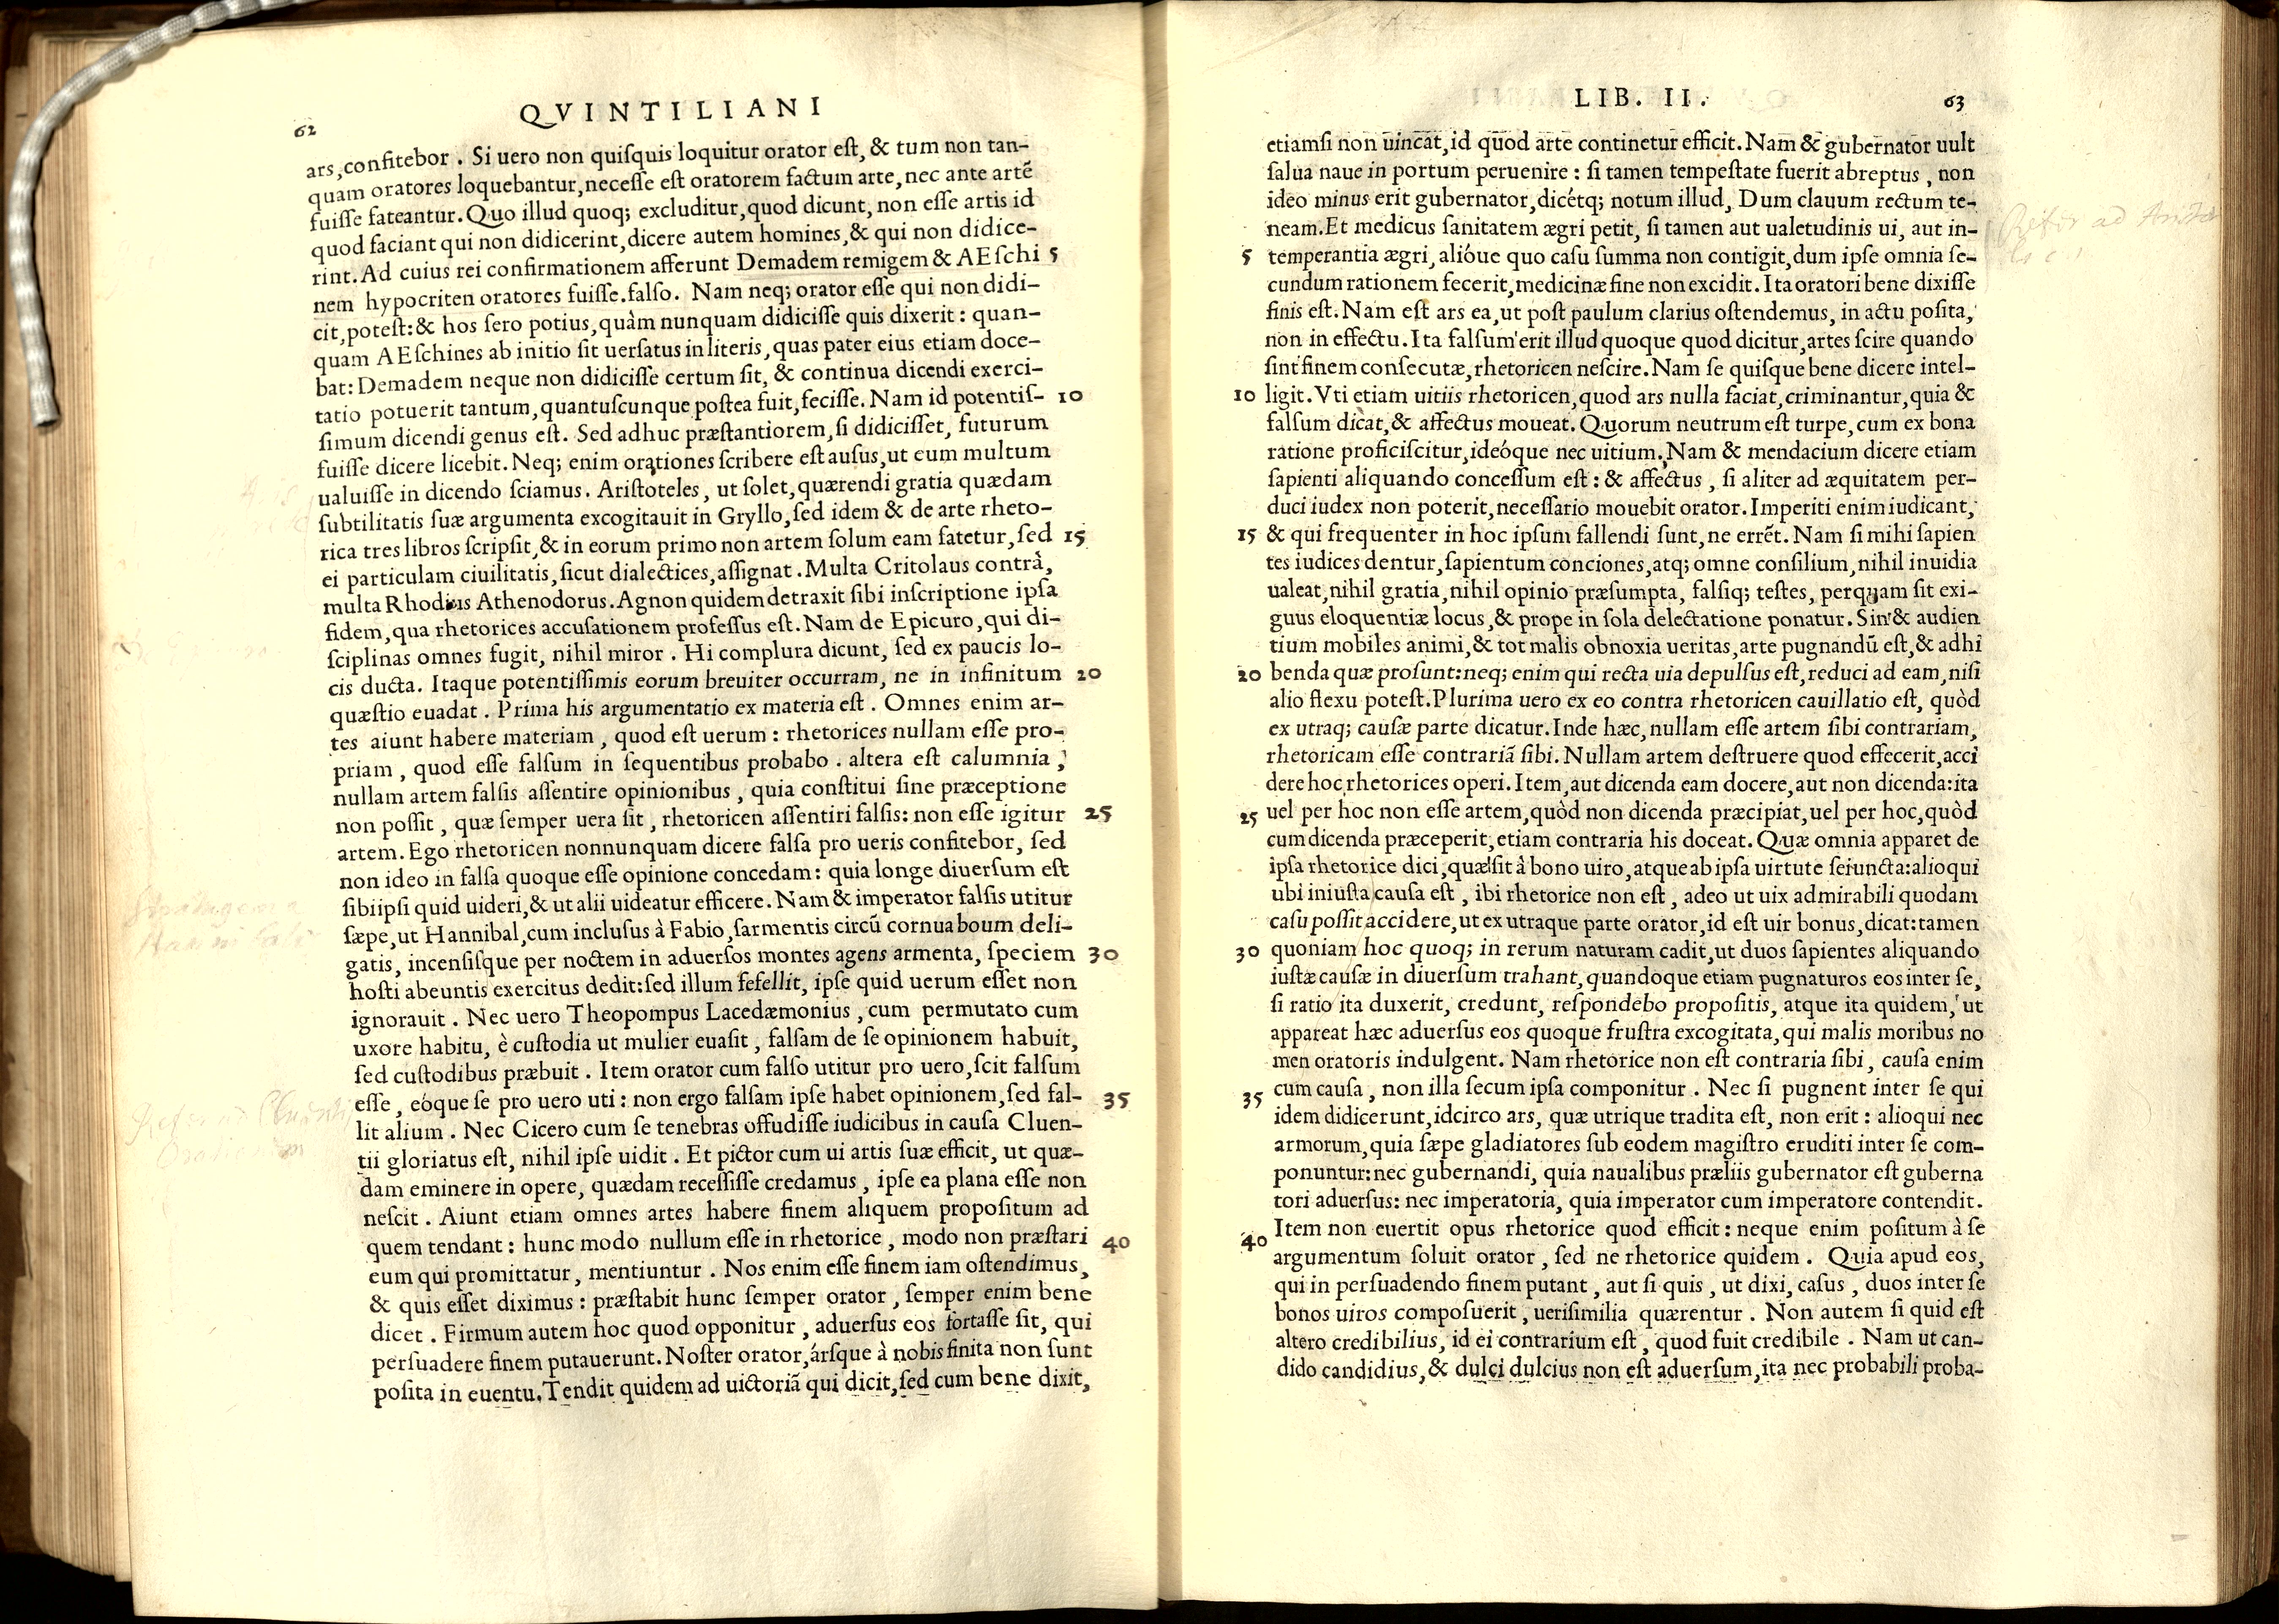 62
QVINTILIANI
ars, confitebor. Si uero non quiſquis loquitur orator eſt, & tum non tan-
quam oratores loquebantur, neceſſe eſt oratorem factum arte, nec ante artē
fuiſſe fateantur. Quo illud quoq; excluditur, quod dicunt, non eſſe artis id
quod faciant qui non didicerint, dicere autem homines, & qui non didice-
rint. Ad cuius rei confirmationem afferunt Demadem remigem & AEſchi 5
nem hypocriten oratores fuiſſe. falſo. Nam neq; orator eſſe qui non didi-
cit, poteſt: & hos ſero potius, quàm nunquam didiciſſe quis dixerit: quan-
quam AEſchines ab initio ſit uerſatus in literis, quas pater eius etiam doce-
bat: Demadem neque non didiciſſe certum ſit, & continua dicendi exerci-
tatio potuerit tantum, quantuſcunque poſtea fuit, feciſſe. Nam id potentiſ- 10
ſimum dicendi genus eſt. Sed adhuc præſtantiorem, ſi didiciſſet, futurum
fuiſſe dicere licebit. Neq; enim orationes ſcribere eſt auſus, ut eum multum
ualuiſſe in dicendo ſciamus. Ariſtoteles, ut ſolet, quærendi gratia quædam
ſubtilitatis ſuæ argumenta excogitauit in Gryllo, ſed idem & de arte rheto-
rica tres libros ſcripſit, & in eorum primo non artem ſolum eam fatetur, ſed 15
ei particulam ciuilitatis, ſicut dialectices, aſſignat. Multa Critolaus contrà,
multa Rhodius Athenodorus. Agnon quidem detraxit ſibi inſcriptione ipſa
fidem, qua rhetorices accuſationem profeſſus eſt. Nam de Epicuro, qui di-
ſciplinas omnes fugit, nihil miror. Hi complura dicunt, ſed ex paucis lo-
cis ducta. Itaque potentiſſimis eorum breuiter occurram, ne in infinitum 20
quæſtio euadat. Prima his argumentatio ex materia eſt. Omnes enim ar-
tes aiunt habere materiam, quod eſt uerum: rhetorices nullam eſſe pro-
priam, quod eſſe falſum in ſequentibus probabo. altera eſt calumnia,
nullam artem falſis aſſentire opinionibus, quia conſtitui ſine præceptione
non poſſit, quæ ſemper uera ſit, rhetoricen aſſentiri falſis: non eſſe igitur 25
artem. Ego rhetoricen nonnunquam dicere falſa pro ueris confitebor, ſed
non ideo in falſa quoque eſſe opinione concedam: quia longe diuerſum eſt
ſibiipſi quid uideri, & ut alii uideatur efficere. Nam & imperator falſis utitur
ſæpe, ut Hannibal, cum incluſus à Fabio, ſarmentis circū cornua boum deli-
gatis, incenſiſque per noctem in aduerſos montes agens armenta, ſpeciem 30
hoſti abeuntis exercitus dedit: ſed illum fefellit, ipſe quid uerum eſſet non
ignorauit. Nec uero Theopompus Lacedæmonius, cum permutato cum
uxore habitu, è cuſtodia ut mulier euaſit, falſam de ſe opinionem habuit,
ſed cuſtodibus præbuit. Item orator cum falſo utitur pro uero, ſcit falſum
eſſe, eóque ſe pro uero uti: non ergo falſam ipſe habet opinionem, ſed fal- 35
lit alium. Nec Cicero cum ſe tenebras offudiſſe iudicibus in cauſa Cluen-
tii gloriatus eſt, nihil ipſe uidit. Et pictor cum ui artis ſuæ efficit, ut quæ-
dam eminere in opere, quædam receſſiſſe credamus, ipſe ea plana eſſe non
neſcit. Aiunt etiam omnes artes habere finem aliquem propoſitum ad
quem tendant: hunc modo nullum eſſe in rhetorice, modo non præſtari 40
eum qui promittatur, mentiuntur. Nos enim eſſe finem iam oſtendimus,
& quis eſſet diximus: præſtabit hunc ſemper orator, ſemper enim bene
dicet. Firmum autem hoc quod opponitur, aduerſus eos fortaſſe ſit, qui
perſuadere finem putauerunt. Noſter orator, árſque à nobis finita non ſunt
poſita in euentu. Tendit quidem ad uictoriā qui dicit, ſed cum bene dixit,
Stratagema
Hannibalis
LIB. II.
63
etiamſi non uincat, id quod arte continetur efficit. Nam & gubernator uult
ſalua naue in portum peruenire: ſi tamen tempeſtate fuerit abreptus, non
ideo minus erit gubernator, dicétq; notum illud, Dum clauum rectum te-
neam. Et medicus ſanitatem ægri petit, ſi tamen aut ualetudinis ui, aut in-
5 temperantia ægri, alióue quo caſu ſumma non contigit, dum ipſe omnia ſe-
cundum rationem fecerit, medicinæ fine non excidit. Ita oratori bene dixiſſe
finis eſt. Nam eſt ars ea, ut poſt paulum clarius oſtendemus, in actu poſita,
non in effectu. Ita falſum erit illud quoque quod dicitur, artes ſcire quando
ſint finem conſecutæ, rhetoricen neſcire. Nam ſe quiſque bene dicere intel-
10 ligit. Vti etiam uitiis rhetoricen, quod ars nulla faciat, criminantur, quia &
falſum dicat, & affectus moueat. Quorum neutrum eſt turpe, cum ex bona
ratione proficiſcitur, ideóque nec uitium. Nam & mendacium dicere etiam
ſapienti aliquando conceſſum eſt: & affectus, ſi aliter ad æquitatem per-
duci iudex non poterit, neceſſario mouebit orator. Imperiti enim iudicant,
15 & qui frequenter in hoc ipſum fallendi ſunt, ne errēt. Nam ſi mihi ſapien
tes iudices dentur, ſapientum conciones, atq; omne conſilium, nihil inuidia
ualeat, nihil gratia, nihil opinio præſumpta, falſiq; teſtes, perquam ſit exi-
guus eloquentiæ locus, & prope in ſola delectatione ponatur. Sin & audien
tium mobiles animi, & tot malis obnoxia ueritas, arte pugnandū eſt, & adhi
20 benda quæ proſunt: neq; enim qui recta uia depulſus eſt, reduci ad eam, niſi
alio flexu poteſt. Plurima uero ex eo contra rhetoricen cauillatio eſt, quòd
ex utraq; cauſæ parte dicatur. Inde hæc, nullam eſſe artem ſibi contrariam,
rhetoricam eſſe contrariā ſibi. Nullam artem deſtruere quod effecerit, acci
dere hoc rhetorices operi. Item, aut dicenda eam docere, aut non dicenda: ita
25 uel per hoc non eſſe artem, quòd non dicenda præcipiat, uel per hoc, quòd
cum dicenda præceperit, etiam contraria his doceat. Quæ omnia apparet de
ipſa rhetorice dici, quæ ſit à bono uiro, atque ab ipſa uirtute ſeiuncta: alioqui
ubi iniuſta cauſa eſt, ibi rhetorice non eſt, adeo ut uix admirabili quodam
caſu poſſit accidere, ut ex utraque parte orator, id eſt uir bonus, dicat: tamen
30 quoniam hoc quoq; in rerum naturam cadit, ut duos ſapientes aliquando
iuſtæ cauſæ in diuerſum trahant, quandoque etiam pugnaturos eos inter ſe,
ſi ratio ita duxerit, credunt, reſpondebo propoſitis, atque ita quidem, ut
appareat hæc aduerſus eos quoque fruſtra excogitata, qui malis moribus no
men oratoris indulgent. Nam rhetorice non eſt contraria ſibi, cauſa enim
35 cum cauſa, non illa ſecum ipſa componitur. Nec ſi pugnent inter ſe qui
idem didicerunt, idcirco ars, quæ utrique tradita eſt, non erit: alioqui nec
armorum, quia ſæpe gladiatores ſub eodem magiſtro eruditi inter ſe com-
ponuntur: nec gubernandi, quia naualibus præliis gubernator eſt guberna
tori aduerſus: nec imperatoria, quia imperator cum imperatore contendit.
40 Item non euertit opus rhetorice quod efficit: neque enim poſitum à ſe
argumentum ſoluit orator, ſed ne rhetorice quidem. Quia apud eos,
qui in perſuadendo finem putant, aut ſi quis, ut dixi, caſus, duos inter ſe
bonos uiros compoſuerit, ueriſimilia quærentur. Non autem ſi quid eſt
altero credibilius, id ei contrarium eſt, quod fuit credibile. Nam ut can-
dido candidius, & dulci dulcius non eſt aduerſum, ita nec probabili proba-